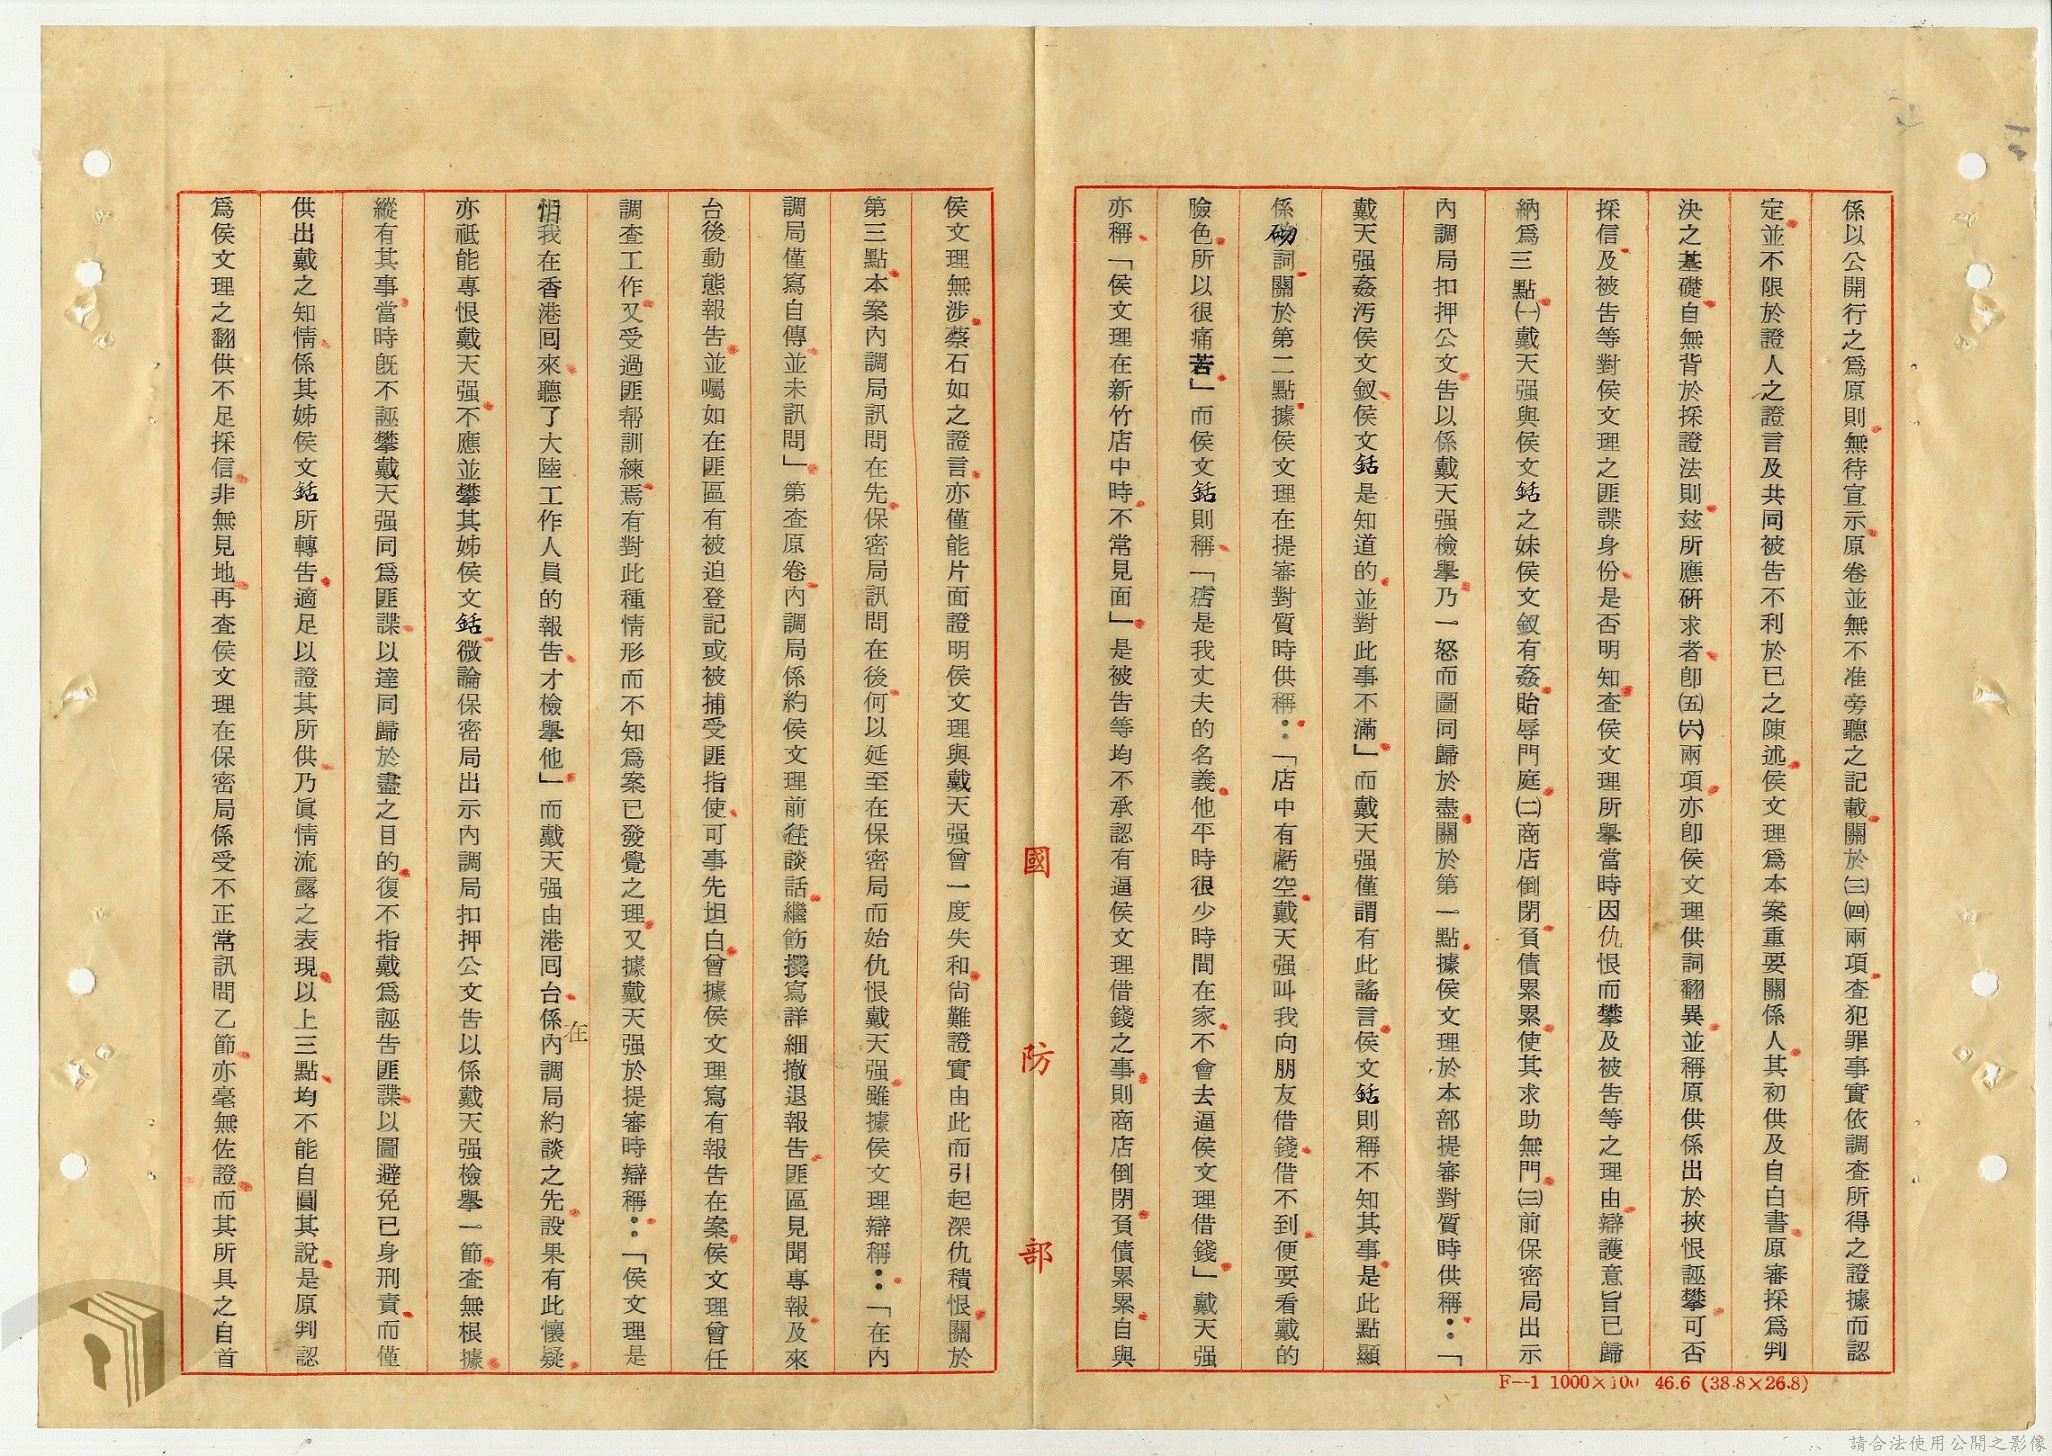 係以公開行之爲原則無待宣示原卷並無不准旁聽之記載關於㈢㈣兩項查犯罪事實依調查所得之證據而認
定並不限於證人之證言及共同被告不利於已之陳述侯文理爲本案重要關係人其初供及自白書原審採爲判
決之基礎自無背於採證法則茲所應研求者卽㈤㈥兩項亦卽侯文理供詞翻異並稱原供係出於挾恨誣攀可否
採信及被告等對侯文理之匪諜身份是否明知查侯文理所舉當時因仇恨而攀及被告等之理由辯護意旨已歸
納爲三點㈠戴天强與侯文銛之妹侯文釵有姦貽辱門庭㈡商店倒閉負債累累使其求助無門㈢前保密局出示
內調局扣押公文告以係戴天强檢擧乃一怒而圖同歸於盡關於第一點據侯文理於本部提審對質時供稱：「
戴天强姦汚侯文釵侯文銛是知道的並對此事不滿」而戴天强僅謂有此謠言侯文銛則稱不知其事是此點顯
係砌詞關於第二點據侯文理在提審對質時供稱：「店中有虧空戴天强叫我向朋友借錢借不到便要看戴的
臉色所以很痛苦」而侯文銛則稱「店是我丈夫的名義他平時很少時間在家不會去逼侯文理借錢」戴天强
亦稱「侯文理在新竹店中時不常見面」是被告等均不承認有逼侯文理借錢之事則商店倒閉負債累累自與
侯文理無涉蔡石如之證言亦僅能片面證明侯文理與戴天强曾一度失和尙難證實由此而引起深仇積恨關於
第三點本案內調局訊問在先保密局訊問在後何以延至在保密局而始仇恨戴天强雖據侯文理辯稱：「在內
調局僅寫自傳並未訊問」第查原卷內調局係約侯文理前往談話繼飭撰寫詳細撤退報告匪區見聞專報及來
台後動態報告並囑如在匪區有被迫登記或被捕受匪指使可事先坦白曾據侯文理寫有報告在案侯文理曾任
調查工作又受過匪帮訓練焉有對此種情形而不知爲案已發覺之理又據戴天强於提審時辯稱：「侯文理是
怕我在香港回來聽了大陸工作人員的報告才檢擧他」而戴天强由港囘台係在內調局約談之先設果有此懷疑
亦祇能專恨戴天强不應並攀其姊侯文銛微論保密局出示內調局扣押公文告以係戴天强檢擧一節查無根據
縱有其事當時旣不誣攀戴天强同爲匪諜以達同歸於盡之目的復不指戴爲誣告匪諜以圖避免已身刑責而僅
供出戴之知情係其姊侯文銛所轉告適足以證其所供乃眞情流露之表現以上三點均不能自圓其說是原判認
爲侯文理之翻供不足採信非無見地再查侯文理在保密局係受不正常訊問乙節亦毫無佐證而其所具之自首
國防部
F—1 1000×100 46.6 (38.8×26.8)
請合法使用公開之影像